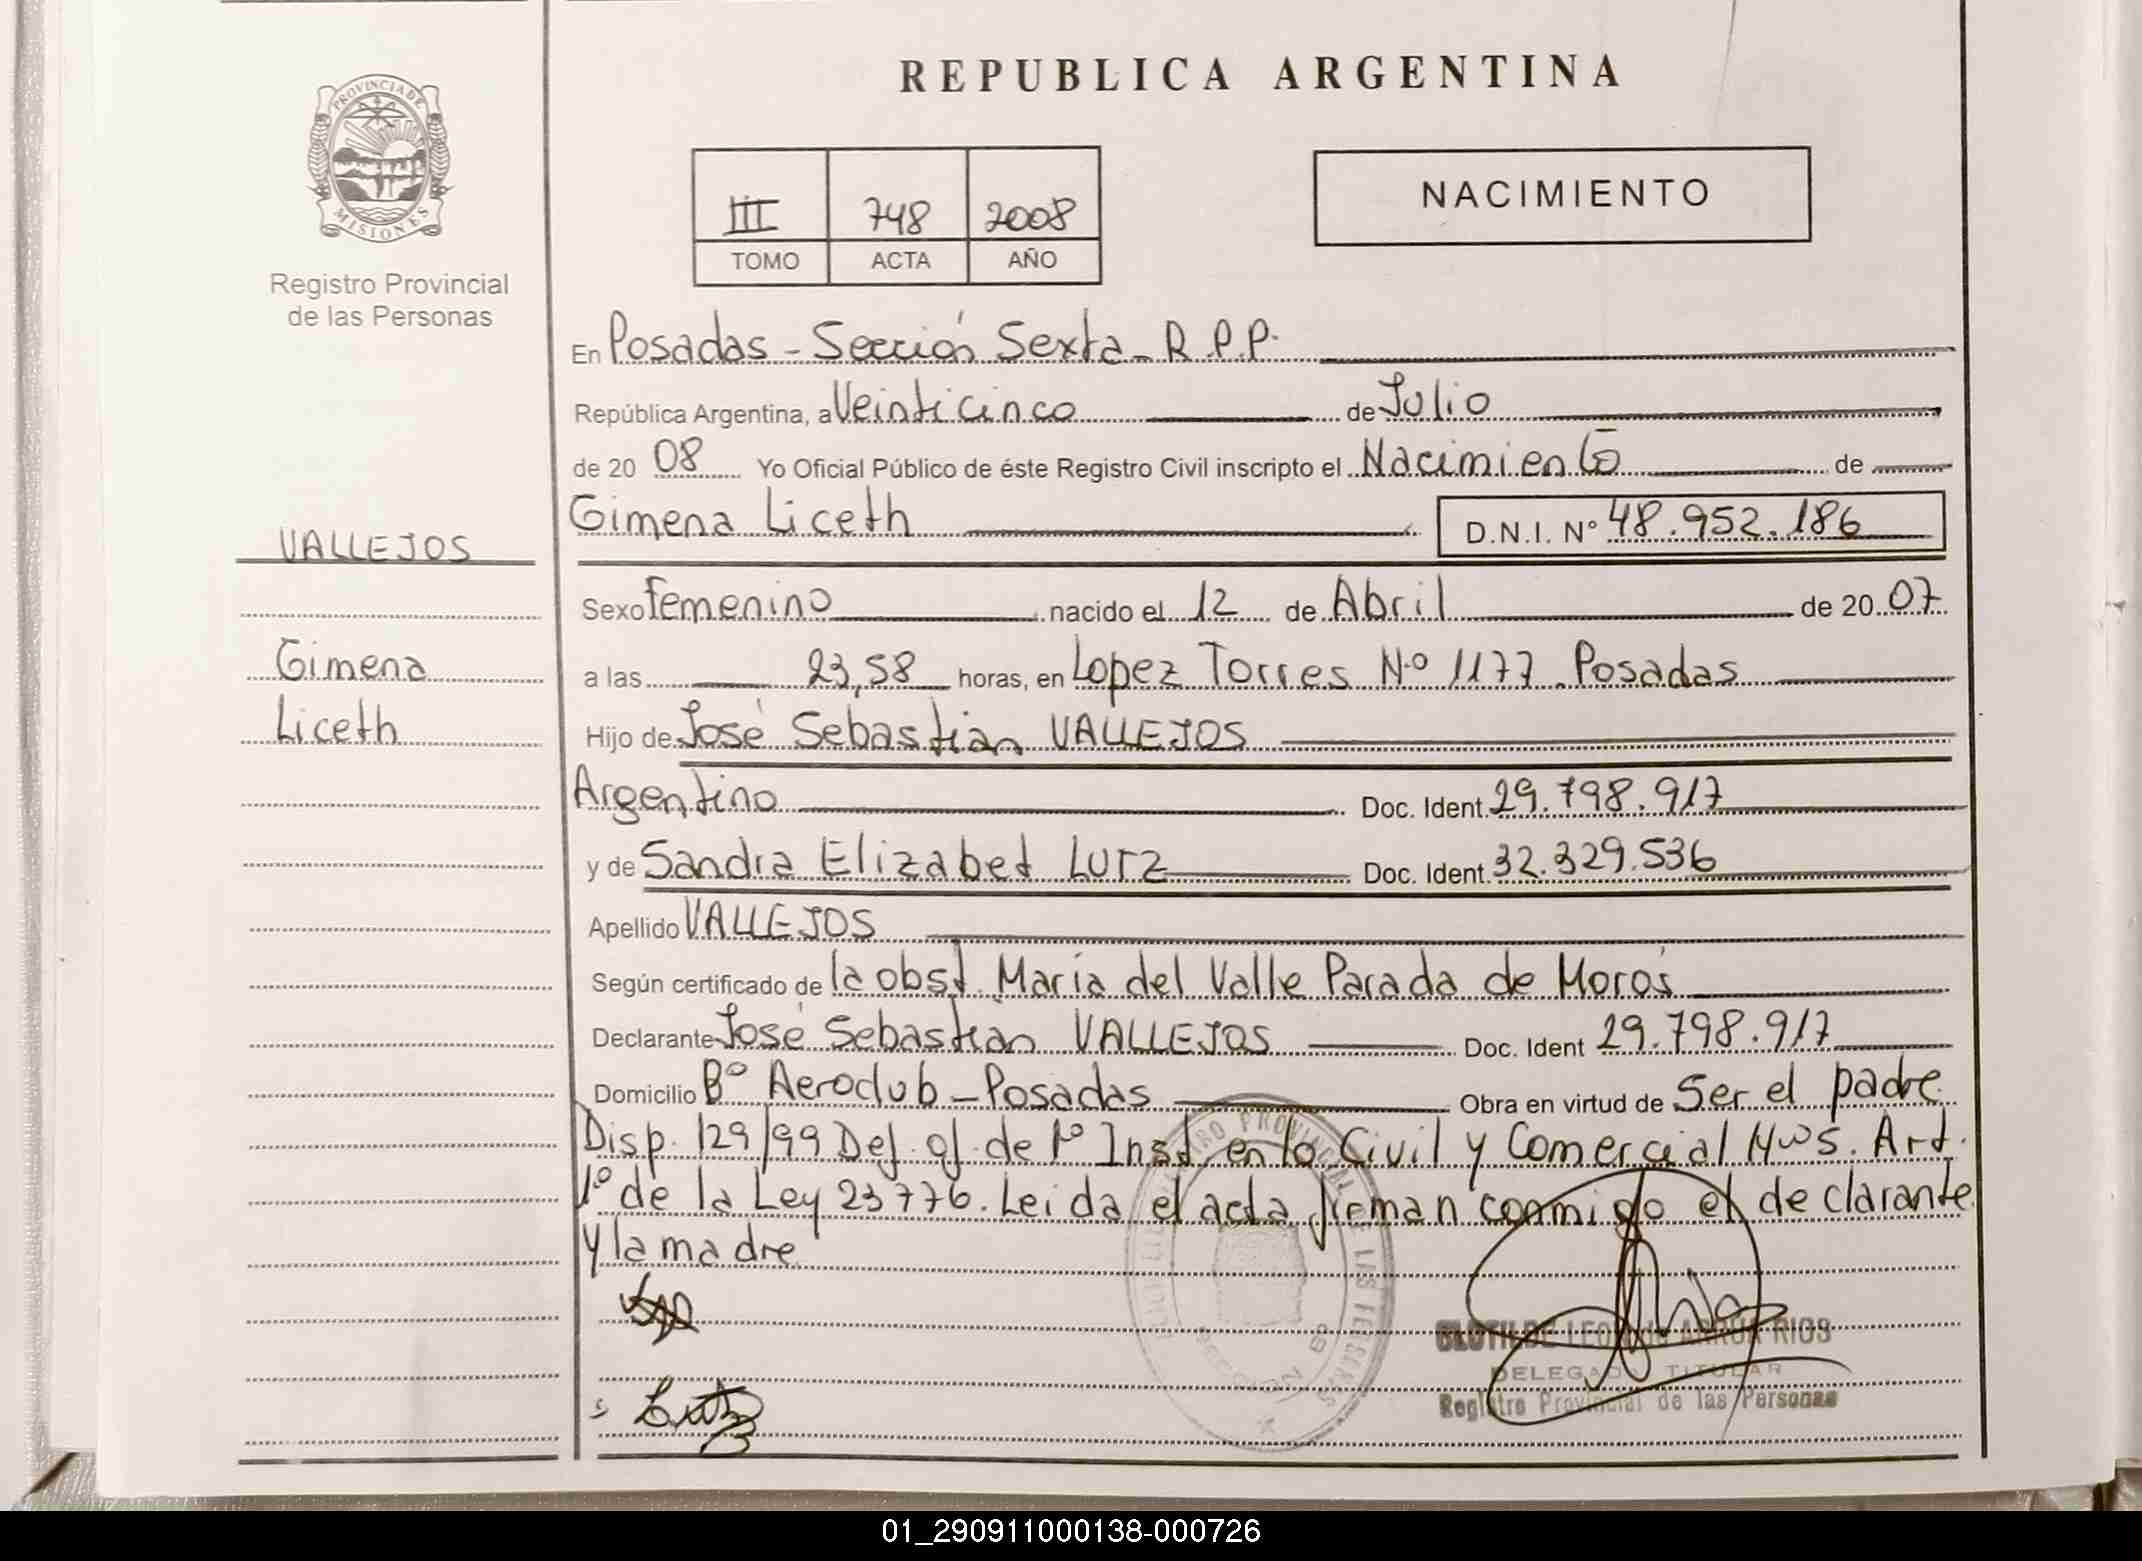 REPUBLICA ARGENTINA
PROVINCIA DE MISIONES
Registro Provincial
de las Personas
III 748 2008
TOMO ACTA AÑO
NACIMIENTO
En Posadas - Sección Sexta - R.P.P.
República Argentina, a Veinticinco de Julio
de 20 08 Yo Oficial Público de éste Registro Civil inscripto el Nacimiento de
Gimena Liceth D.N.I. Nº 48.952.186
VALLEJOS
Gimena
Liceth
Sexo femenino nacido el 12 de Abril de 20 07
a las 23,58 horas, en Lopez Torres Nº 1177 - Posadas
Hijo de José Sebastián VALLEJOS
Argentino Doc. Ident. 29.798.917
y de Sandra Elizabet LUTZ Doc. Ident. 32.329.536
Apellido VALLEJOS
Según certificado de la obst. María del Valle Parada de Morós
Declarante José Sebastián VALLEJOS Doc. Ident 29.798.917
Domicilio Bº Aeroclub - Posadas Obra en virtud de Ser el padre.
Disp. 129/99 Def. of. de 1º Inst. en lo Civil y Comercial Mnes. Art.
1º de la Ley 23776. Leida el acta firman conmigo el declarante
y la madre
Lutz
CLOTILDE ARRUA RIOS
DELEGADO TITULAR
Registro Provincial de las Personas
REGISTRO PROVINCIAL DE LAS PERSONAS
SECCION 6º
01_290911000138-000726